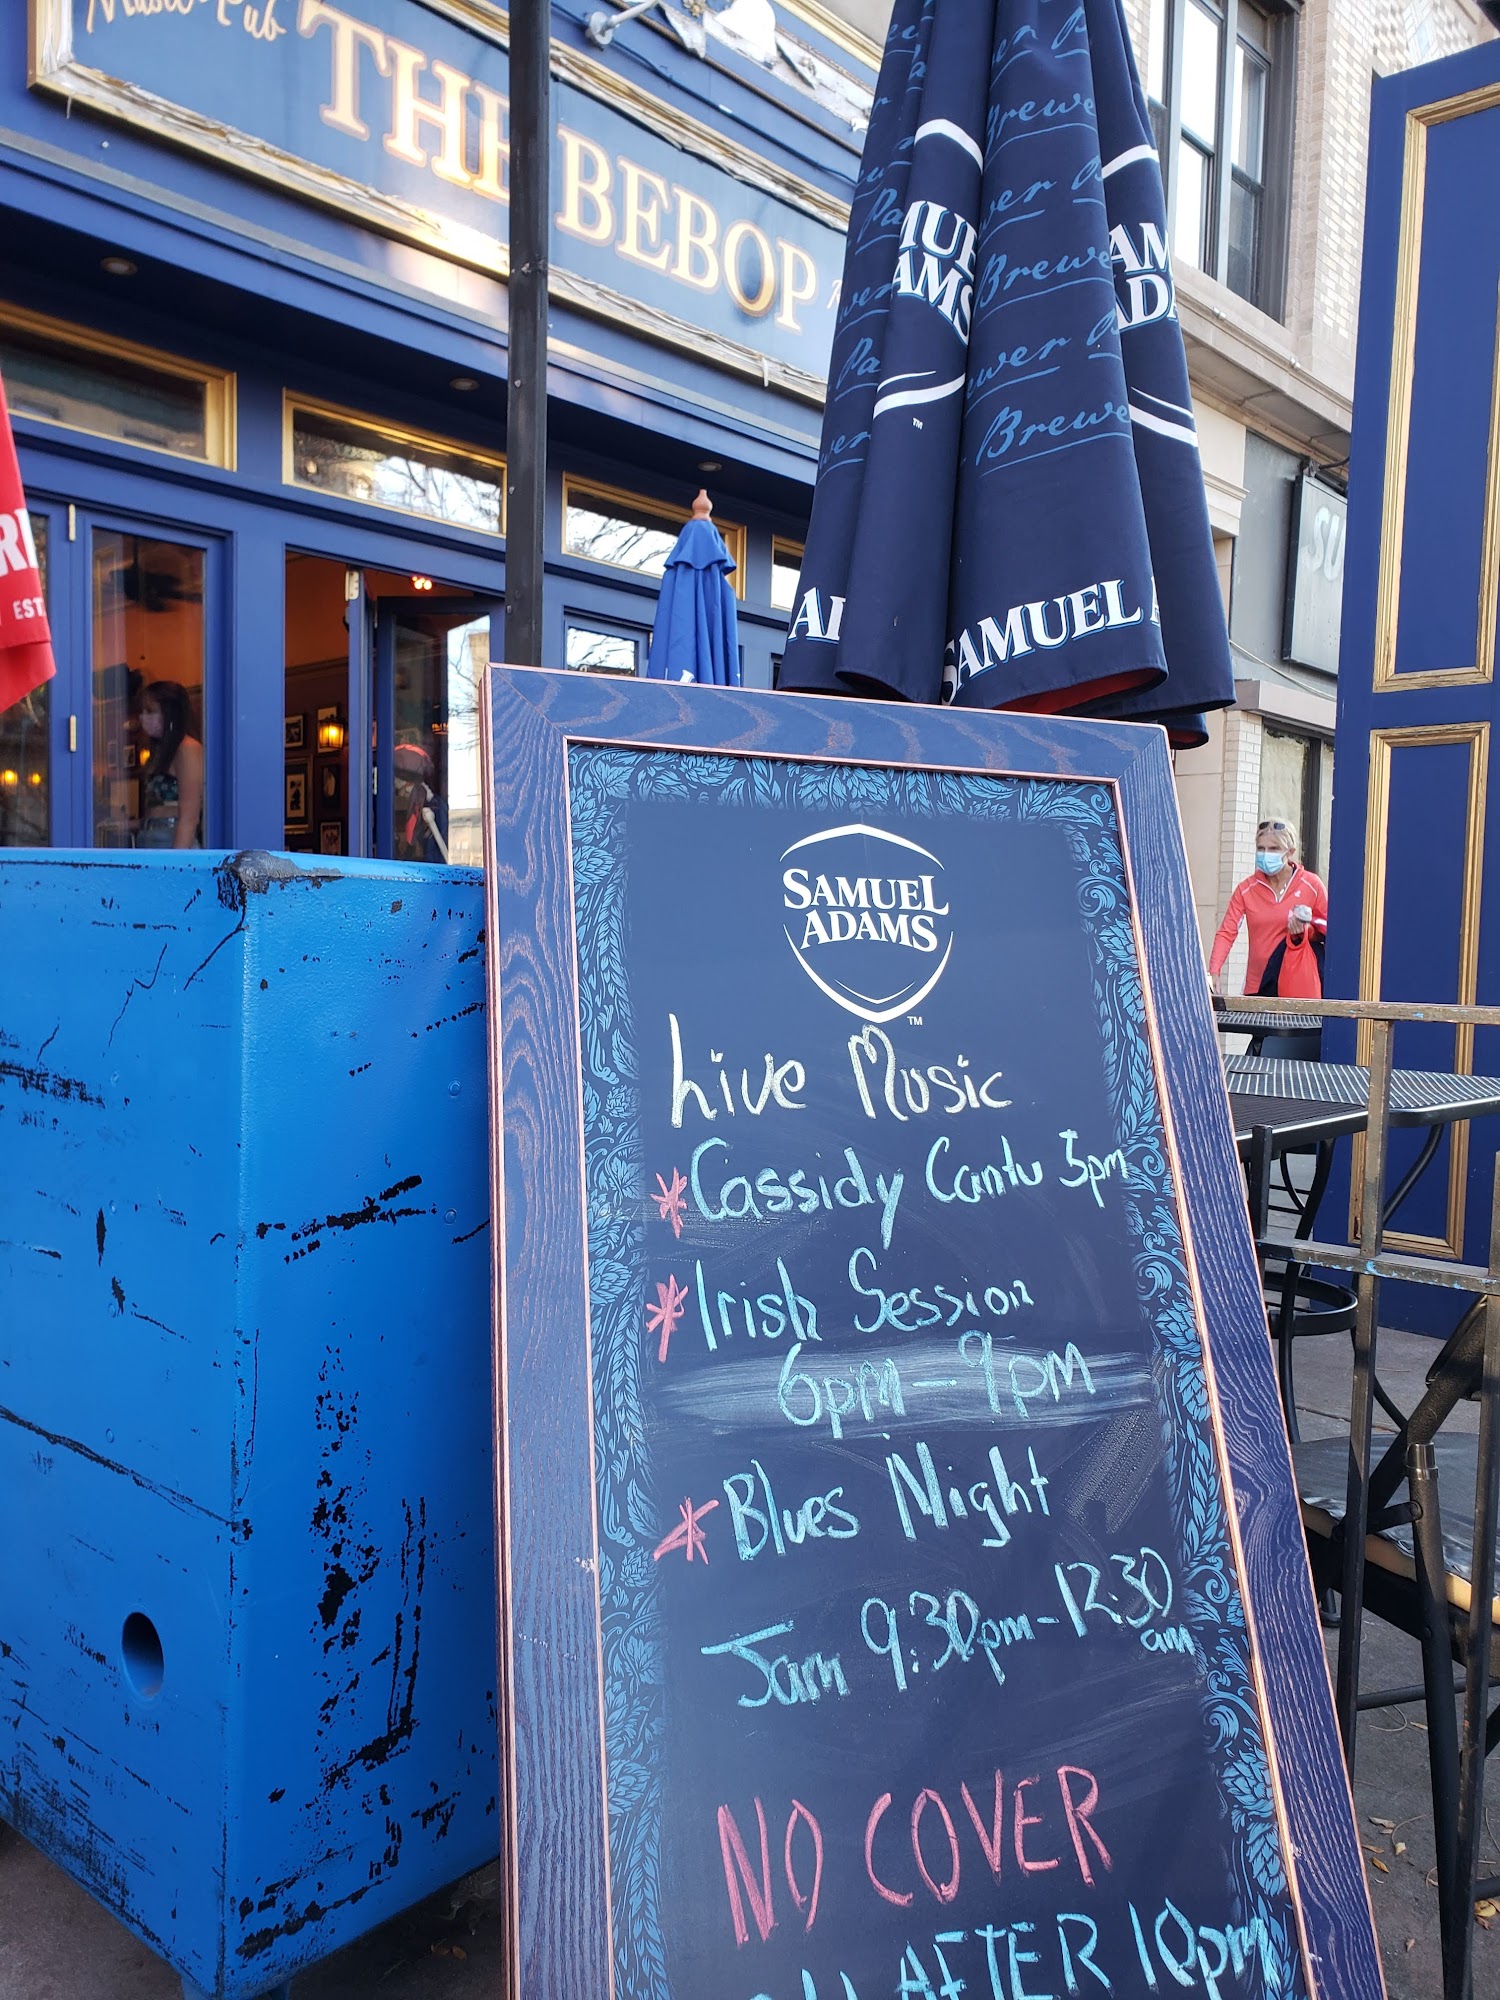 Music Pub
THE BEBOP
SAMUEL
ADAMS
Brewer
Brewer
Brewer
SAMUEL
EST.
SAMUEL
ADAMS
TM
Live Music
* Cassidy Cantu 5pm
* Irish Session
6pm - 9pm
* Blues Night
Jam 9:30pm - 12:30
am
NO COVER
AFTER 10pm